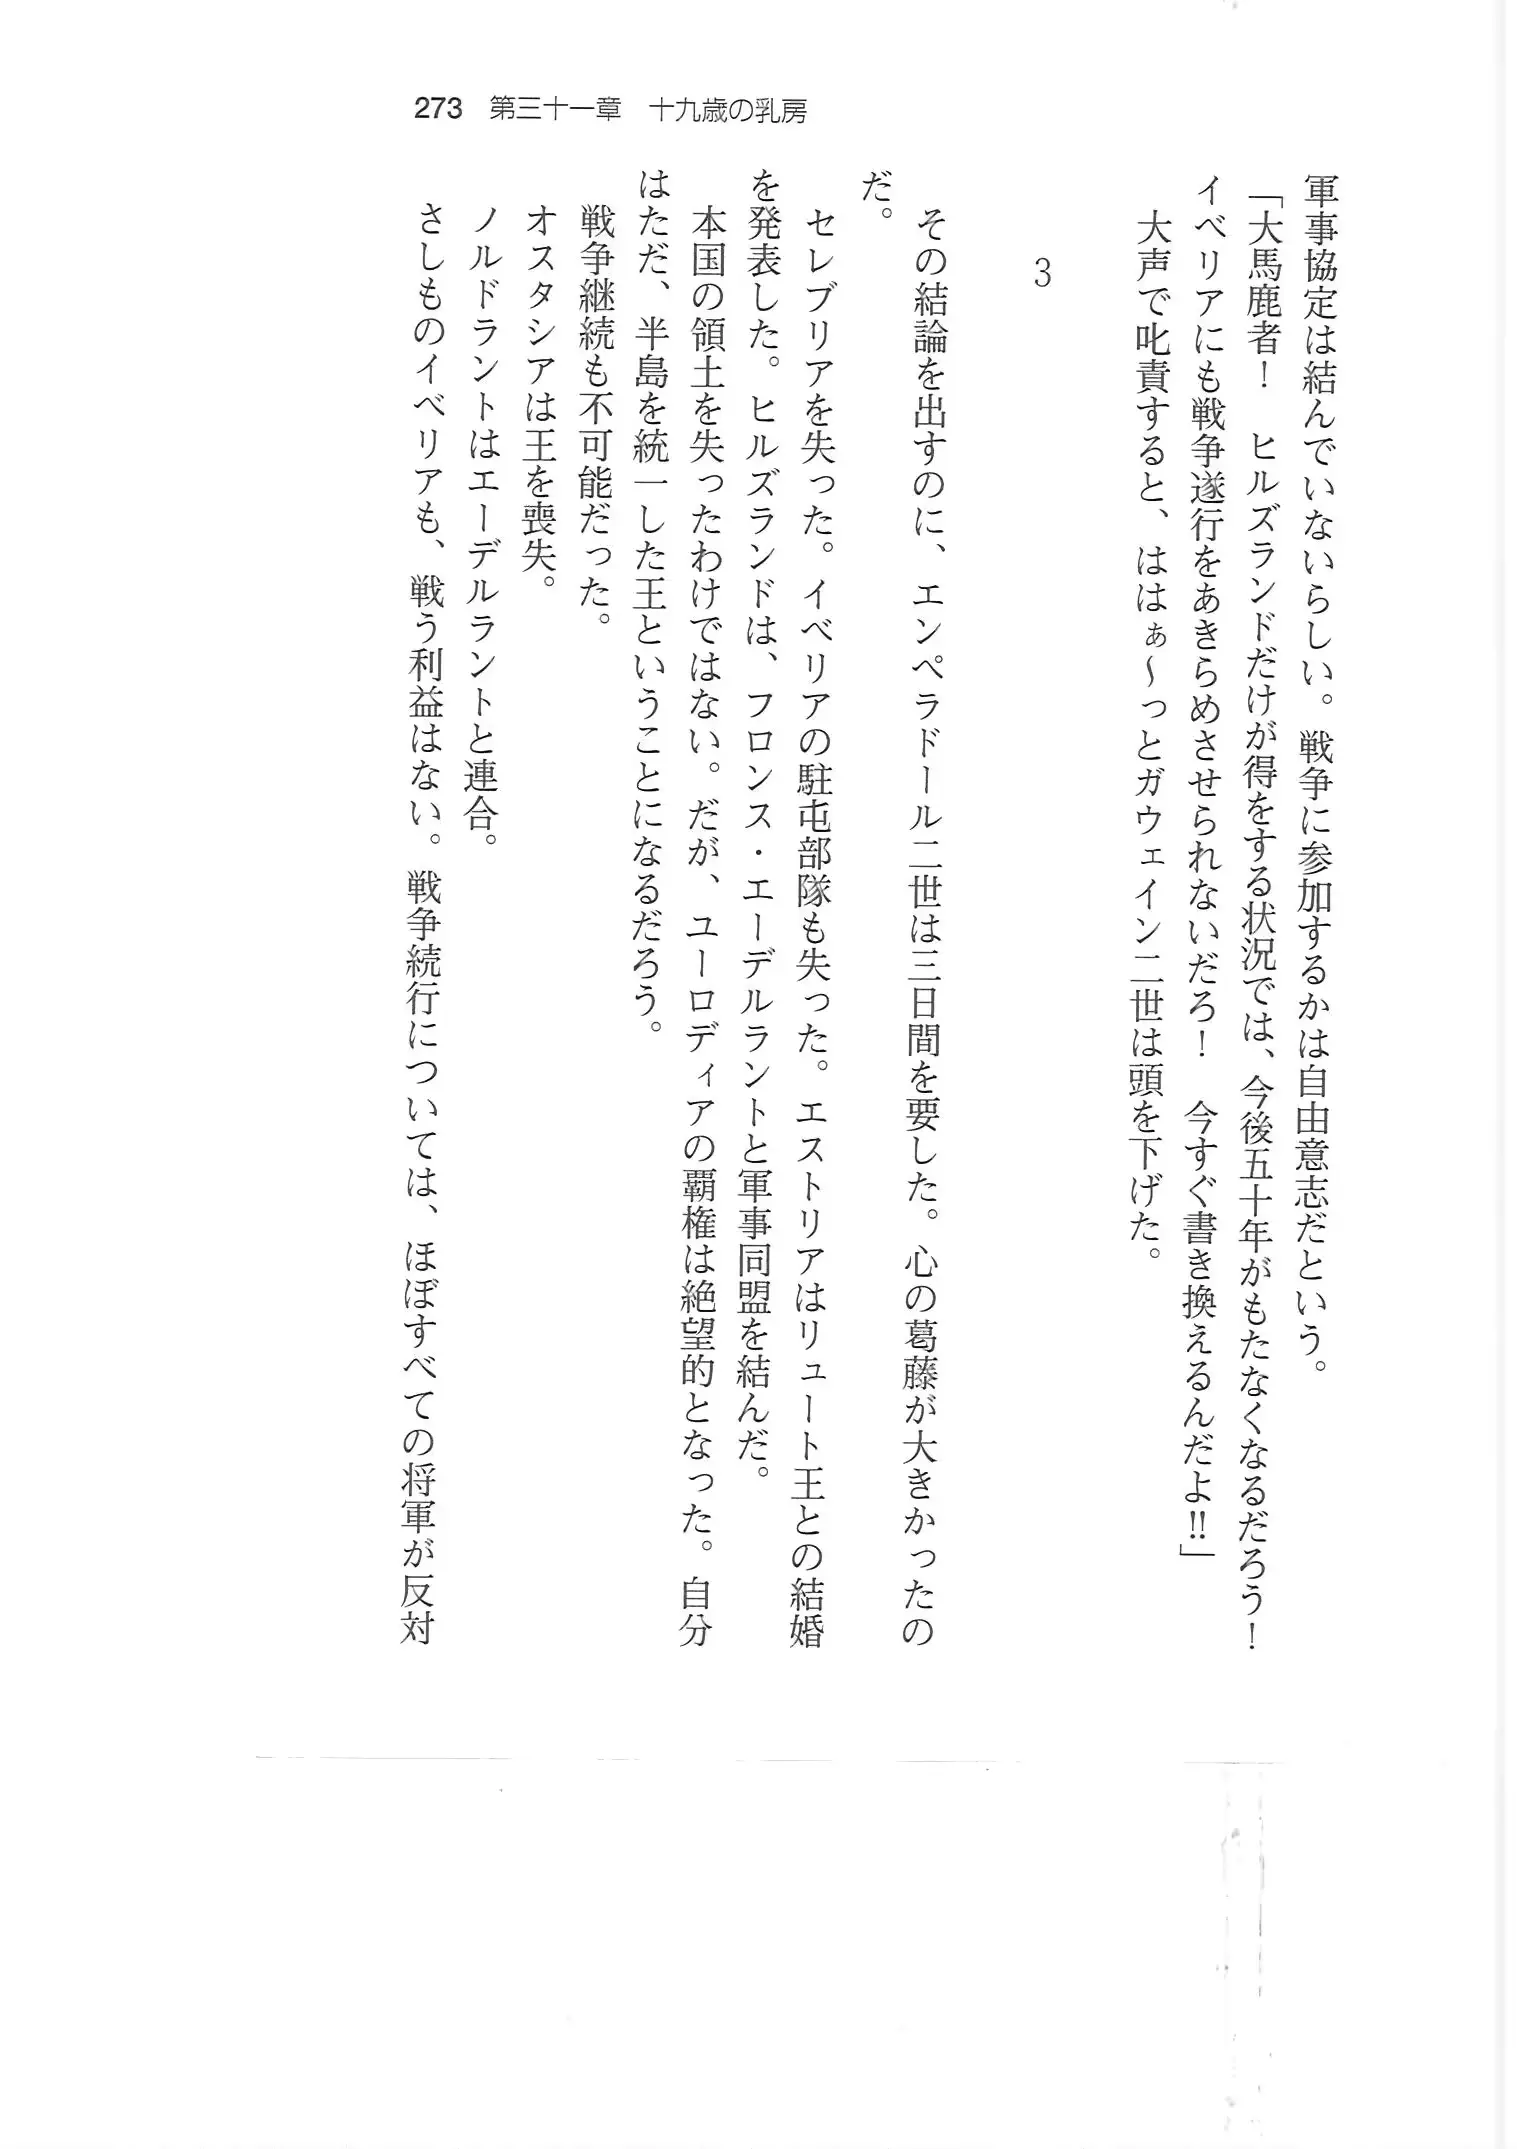 273 第三十一章 十九歳の乳房
軍事協定は結んでいないらしい。戦争に参加するかは自由意志だという。
「大馬鹿者！ ヒルズランドだけが得をする状況では、今後五十年がもたなくなるだろう！
イベリアにも戦争遂行をあきらめさせられないだろ！ 今すぐ書き換えるんだよ!!」
大声で叱責すると、ははぁ～っとガウェイン二世は頭を下げた。
3
その結論を出すのに、エンペラドール二世は三日間を要した。心の葛藤が大きかったの
だ。
セレブリアを失った。イベリアの駐屯部隊も失った。エストリアはリュート王との結婚
を発表した。ヒルズランドは、フロンス・エーデルラントと軍事同盟を結んだ。
本国の領土を失ったわけではない。だが、ユーロディアの覇権は絶望的となった。自分
はただ、半島を統一した王ということになるだろう。
戦争継続も不可能だった。
オスタシアは王を喪失。
ノルドラントはエーデルラントと連合。
さしものイベリアも、戦う利益はない。戦争続行については、ほぼすべての将軍が反対